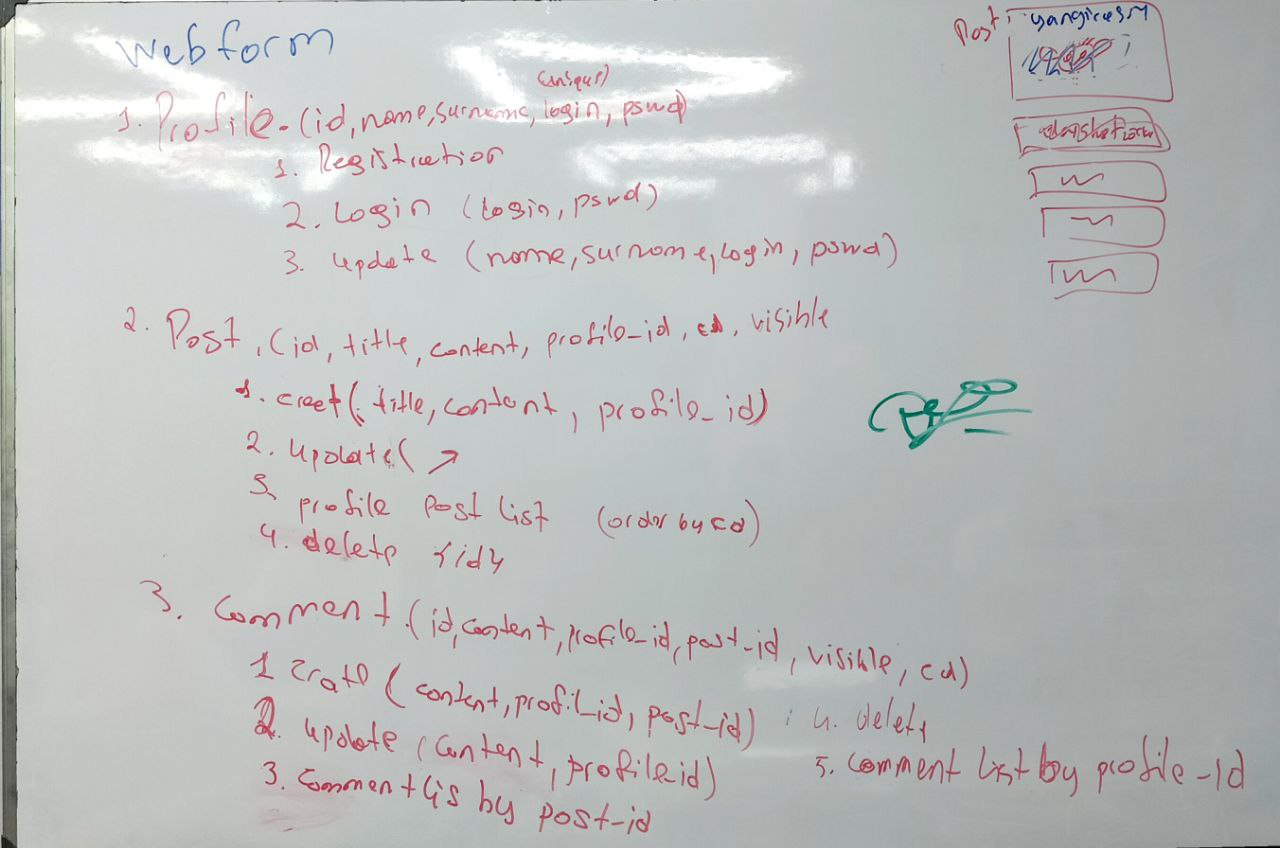 Web form
(unique)
1. Profile - (id, name, surname, login, pswd)
1. Registration
2. Login (login, pswd)
3. update (name, surname, login, pswd)
2. Post, (id, title, content, profile_id, cd, visible
1. creet (title, content, profile_id)
2. update (
3. profile post list (order by cd)
4. delete {id}
3. Comment (id, content, profile_id, post_id, visible, cd)
1 Crate (content, profil_id, post_id)
2. update (content, profile id)
3. Comment lis by post-id
4. delete
5. Comment list by profile-id
Post: